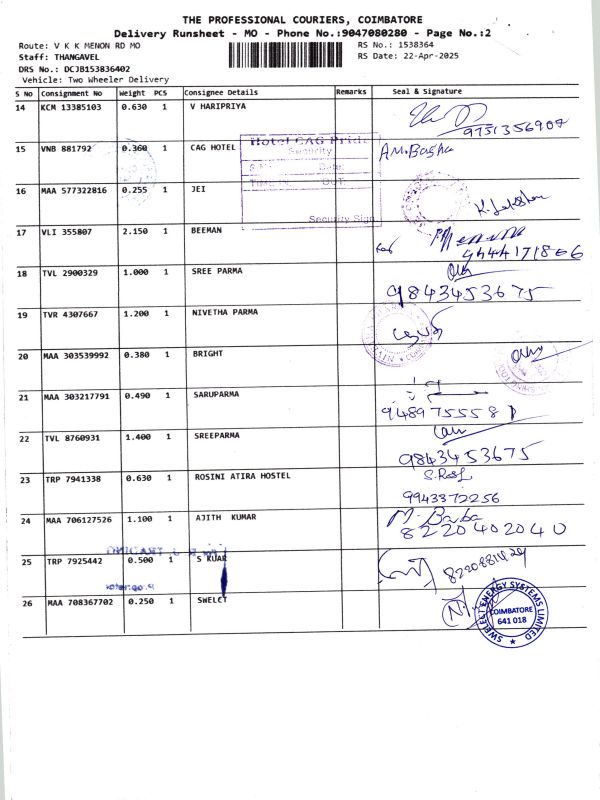 THE PROFESSIONAL COURIERS, COIMBATORE
Delivery Runsheet - MO - Phone No.:9047080280 - Page No.:2
Route: V K K MENON RD MO
RS No.: 1538364
Staff: THANGAVEL
RS Date: 22-Apr-2025
DRS No.: DCJB153836402
Vehicle: Two Wheeler Delivery
S No Consignment No Weight PCS Consignee Details Remarks Seal & Signature
14 KCM 13385103 0.630 1 V HARIPRIYA
9751356907
15 VNB 881792 0.360 1 CAG HOTEL A.M.Basha
Hotel CAG Pride
Security
Date:
OUT:
Security Sign
16 MAA 577322816 0.255 1 JEI
17 VLI 355807 2.150 1 BEEMAN
9444171866
18 TVL 2900329 1.000 1 SREE PARMA
9843453675
19 TVR 4307667 1.200 1 NIVETHA PARMA
20 MAA 303539992 0.380 1 BRIGHT
21 MAA 303217791 0.490 1 SARUPARMA
9489755581
22 TVL 8760931 1.400 1 SREEPARMA
9843453675
23 TRP 7941338 0.630 1 ROSINI ATIRA HOSTEL
9943372256
24 MAA 706127526 1.100 1 AJITH KUMAR
8220402040
25 TRP 7925442 0.500 1 S KUAR
26 MAA 708367702 0.250 1 SWELCT
SWELECT ENERGY SYSTEMS LIMITED
COIMBATORE
641 018